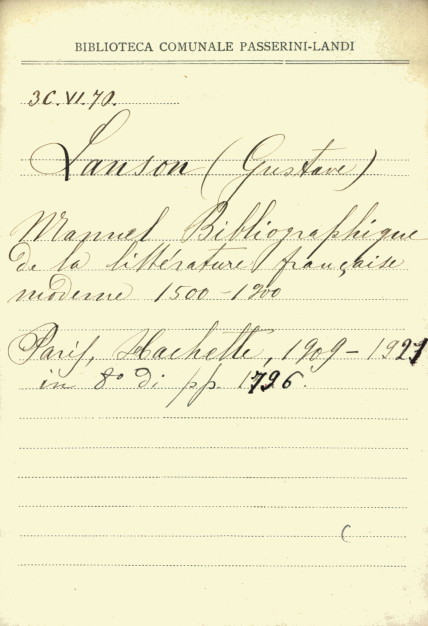 BIBLIOTECA COMUNALE PASSERINI-LANDI
3C.VI.70.
Lanson (Gustave)
Manuel Bibliographique
de la littérature française
moderne 1500-1900
Paris, Hachette, 1909-1921
in 8º di pp. 1796.